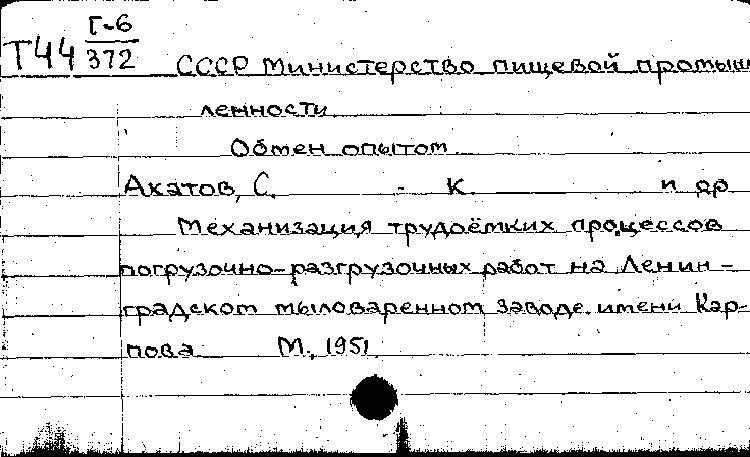 Г-6
Т44 372 СССР Министерство пищевой промыш
ленности
Обмен опытом
Ахатов, С. - К и др
Механизация трудоёмких процессов
погрузочно-разгрузочных работ на Ленин-
градском мыловаренном заводе имени Кар-
пова М., 1951